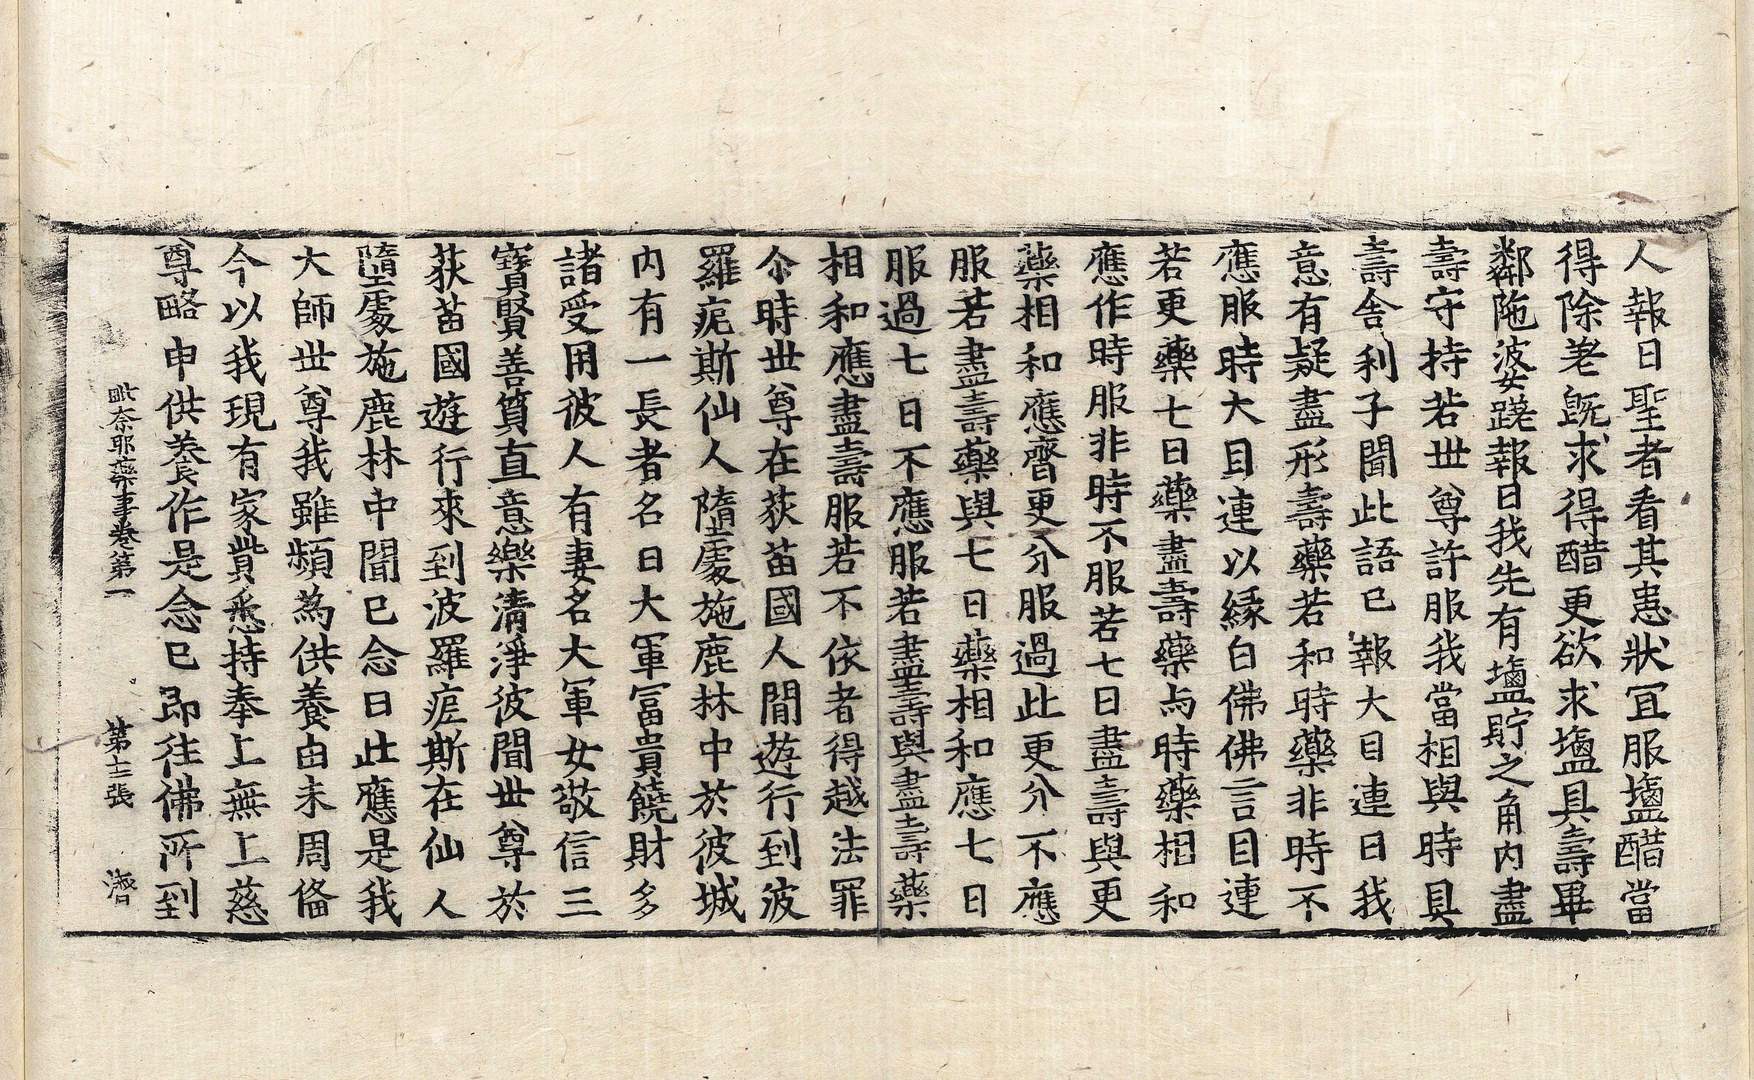 人報曰聖者看其患狀冝服塩醋當
得除差既求得醋更欲求塩具壽畢
鄰陁婆蹉報曰我先有塩貯之角内盡
壽守持若世尊許服我當相與時具
壽舍利子聞此語已報大目連曰我
意有疑盡形壽藥若和時藥非時不
應服時大目連以緣白佛佛言目連
若更藥七日藥盡壽藥与時藥相和
應作時服非時不服若七日盡壽與更
藥相和應齊更分服過此更分不應
服若盡壽藥與七日藥相和應七日
服過七日不應服若盡壽與盡壽藥
相和應盡壽服若不依者得越法罪
尒時世尊在荻苗國人間遊行到波
羅痆斯仙人墮處施鹿林中於彼城
内有一長者名曰大軍冨貴饒財多
諸受用彼人有妻名大軍女敬信三
寶賢善質直意樂清淨彼聞世尊於
荻苗國遊行來到波羅痆斯在仙人
墮處施鹿林中聞已念曰此應是我
大師世尊我雖頻為供養由未周備
今以我現有家貲悉持奉上無上慈
尊略申供養作是念已即往佛所到
毗奈耶藥事卷第一 第十二張 濟